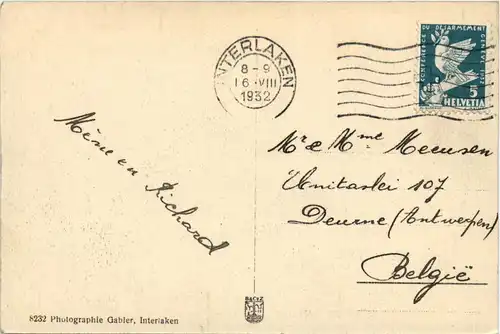 INTERLAKEN
8-9
16.VIII
1932
CONFERENCE DU DESARMEMENT GENEVE 1932
5
HELVETIA
Mr & Mme Meeusen
Unitaslei 107
Deurne (Antwerpen)
België
Mine en Richard
8232 Photographie Gabler, Interlaken